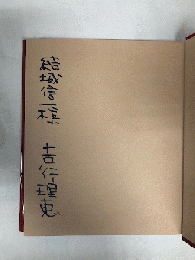 結城信一様 吉行理恵